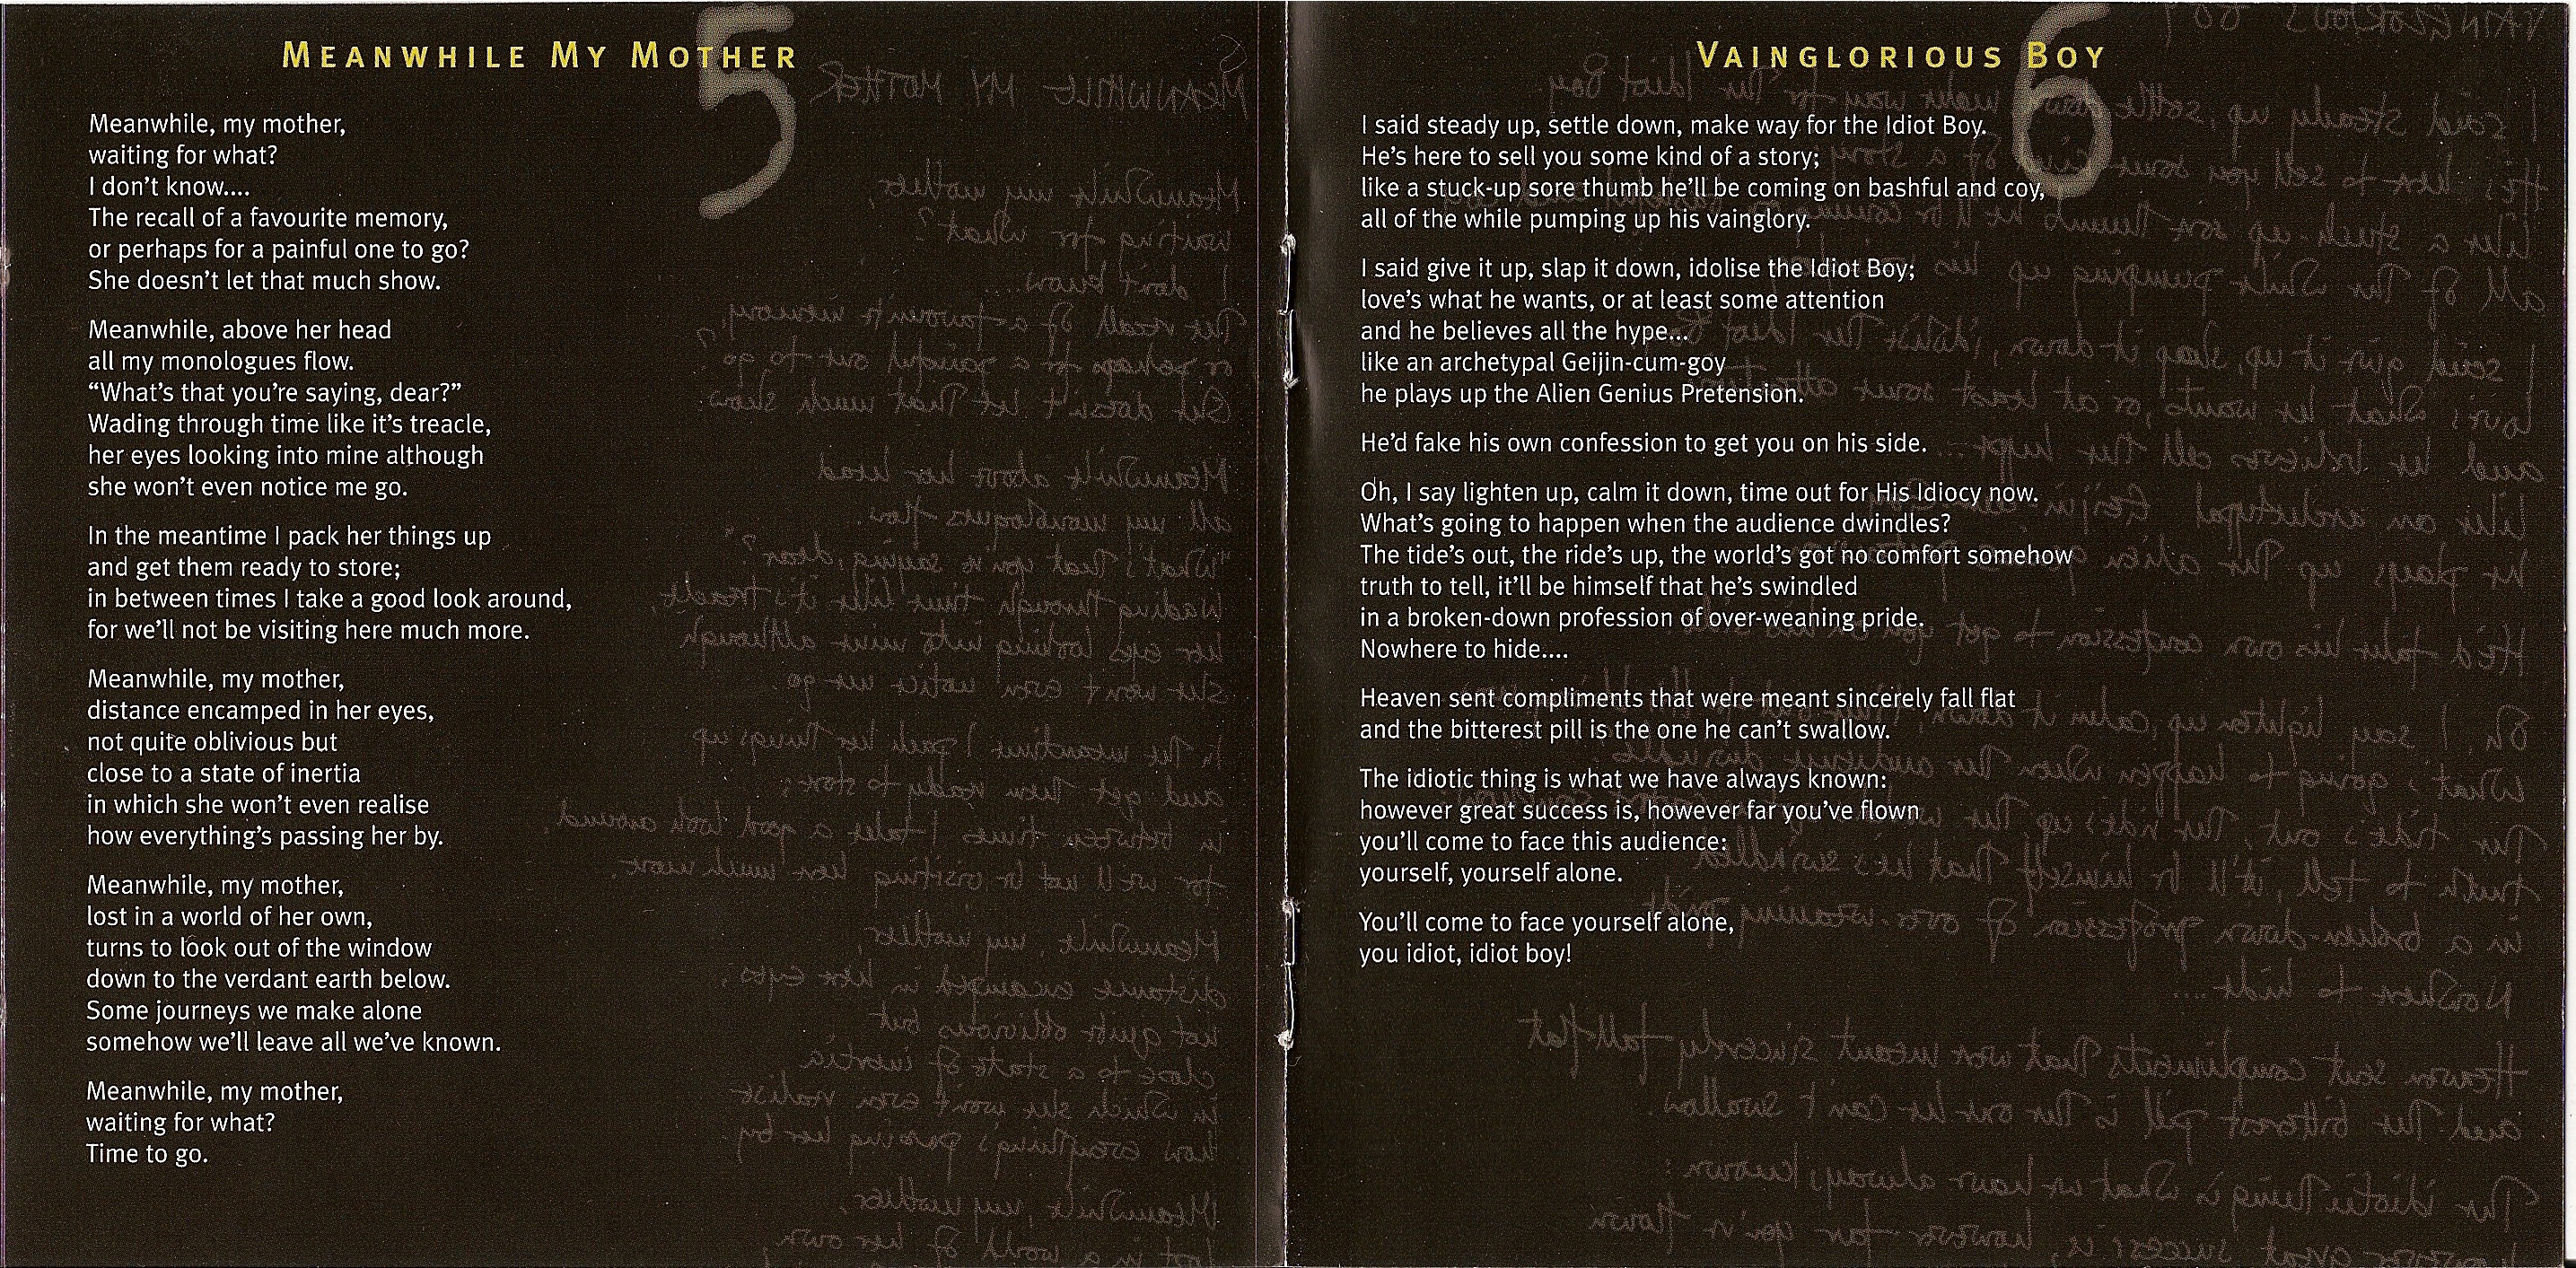 5
MEANWHILE MY MOTHER
Meanwhile, my mother,
waiting for what?
I don't know....
The recall of a favourite memory,
or perhaps for a painful one to go?
She doesn't let that much show.
Meanwhile, above her head
all my monologues flow.
“What's that you're saying, dear?”
Wading through time like it's treacle,
her eyes looking into mine although
she won't even notice me go.
In the meantime I pack her things up
and get them ready to store;
in between times I take a good look around,
for we'll not be visiting here much more.
Meanwhile, my mother,
distance encamped in her eyes,
not quite oblivious but
close to a state of inertia
in which she won't even realise
how everything's passing her by.
Meanwhile, my mother,
lost in a world of her own,
turns to look out of the window
down to the verdant earth below.
Some journeys we make alone
somehow we'll leave all we've known.
Meanwhile, my mother,
waiting for what?
Time to go.
6
VAINGLORIOUS BOY
I said steady up, settle down, make way for the Idiot Boy.
He's here to sell you some kind of a story;
like a stuck-up sore thumb he'll be coming on bashful and coy,
all of the while pumping up his vainglory.
I said give it up, slap it down, idolise the Idiot Boy;
love's what he wants, or at least some attention
and he believes all the hype...
like an archetypal Geijin-cum-goy
he plays up the Alien Genius Pretension.
He'd fake his own confession to get you on his side.
Oh, I say lighten up, calm it down, time out for His Idiocy now.
What's going to happen when the audience dwindles?
The tide's out, the ride's up, the world's got no comfort somehow
truth to tell, it'll be himself that he's swindled
in a broken-down profession of over-weaning pride.
Nowhere to hide....
Heaven sent compliments that were meant sincerely fall flat
and the bitterest pill is the one he can't swallow.
The idiotic thing is what we have always known:
however great success is, however far you've flown
you'll come to face this audience:
yourself, yourself alone.
You'll come to face yourself alone,
you idiot, idiot boy!